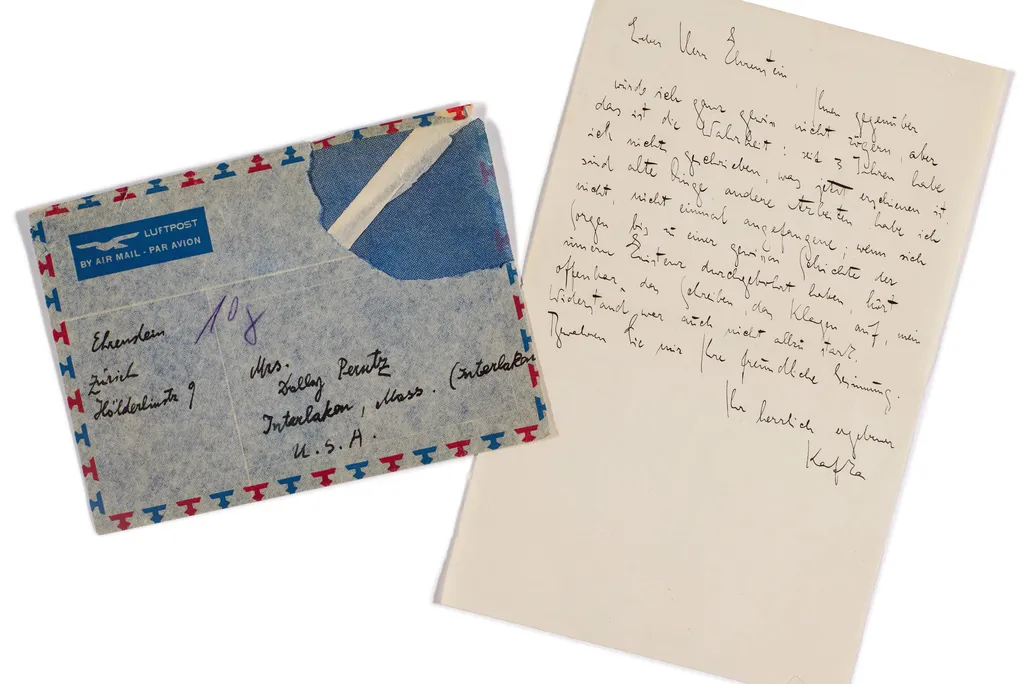 LUFTPOST
BY AIR MAIL - PAR AVION
10 g
Ehrenstein
Zürich
Hölderlinstr 9
Mrs.
Dolly Perutz
Interlaken, Mass. (Interlaken
U.S.A.
Lieber Herr Ehrenstein,
Ihnen gegenüber
würde ich ganz gewiss nicht zögern, aber
das ist die Wahrheit: seit 3 Jahren habe
ich nicht geschrieben, was jetzt erschienen ist
sind alte Dinge andere Arbeiten habe ich
nicht, nicht einmal angefangene, wenn sich
Sorgen bis zu einer gewissen Schichte der
innern Existenz durchgebohrt haben, hört
offenbar das Schreiben, das Klagen auf, mein
Widerstand war auch nicht allzu stark.
Bewahren Sie mir Ihre freundliche Gesinnung.
Ihr herzlich ergebener
Kafka